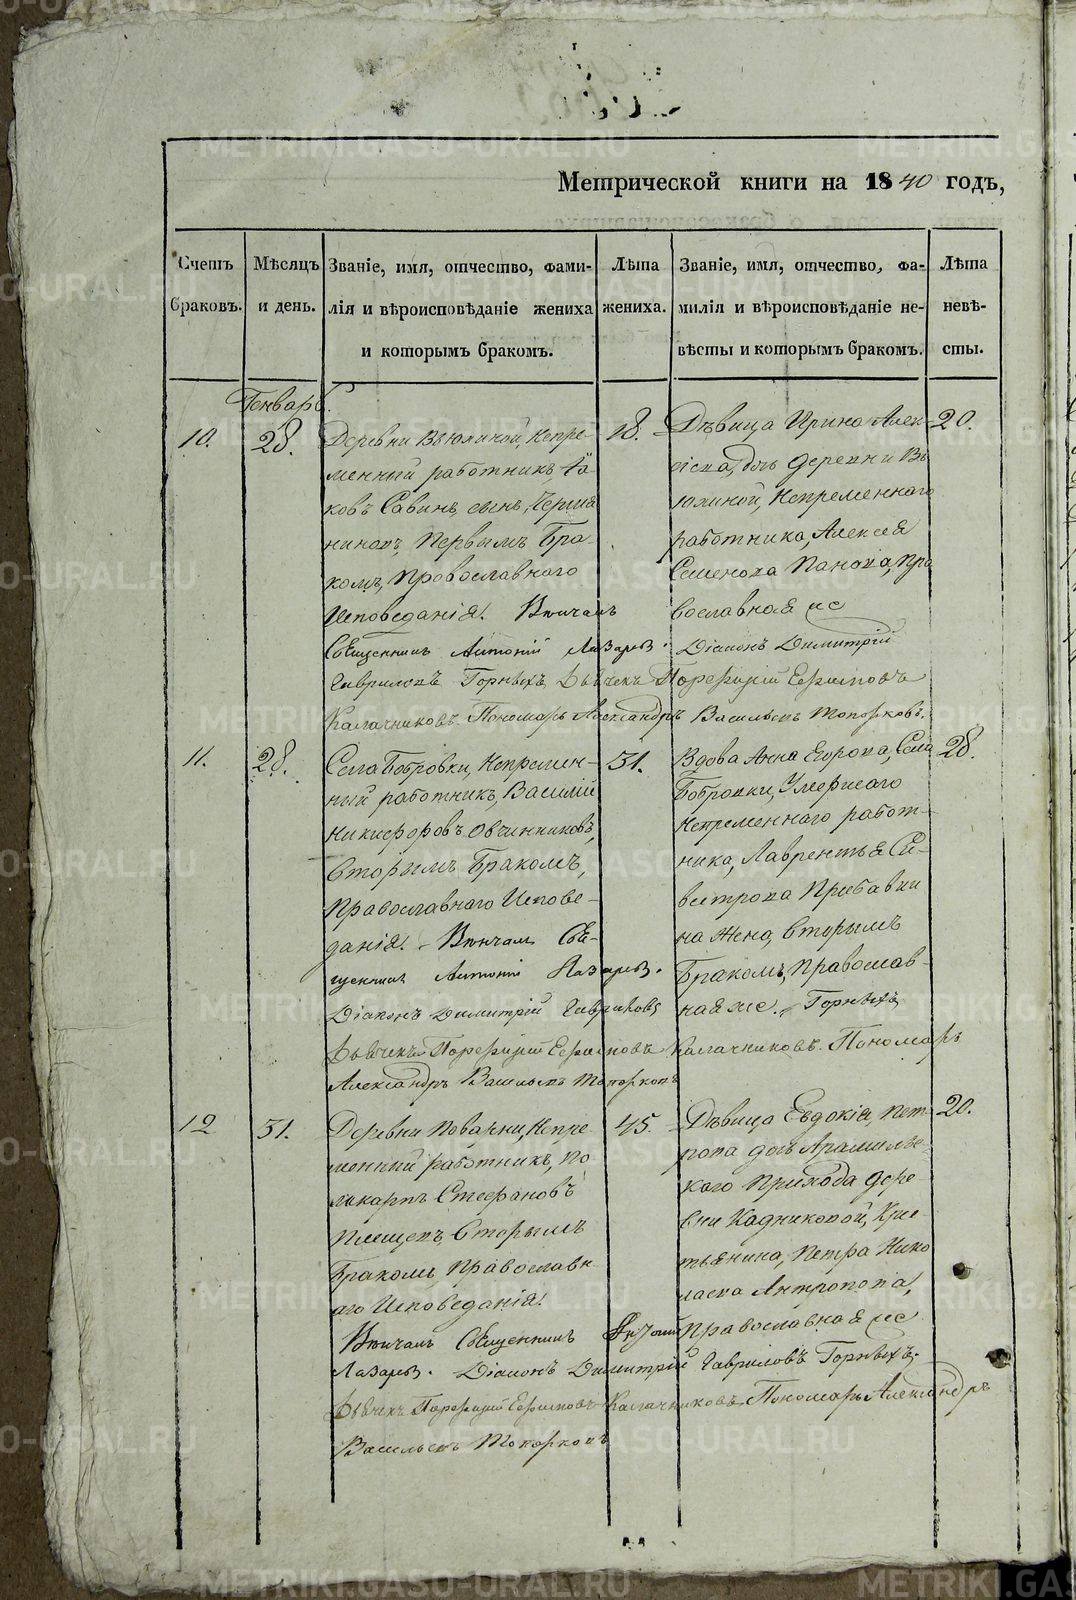 Метрической книги на 1840 годъ,
Счетъ браковъ.
Мѣсяцъ и день.
Званіе, имя, отчество, фами-
лія и вѣроисповѣданіе жениха
и которымъ бракомъ.
Лѣта
жениха.
Званіе, имя, отчество, фа-
милія и вѣроисповѣданіе не-
вѣсты и которымъ бракомъ.
Лѣта
невѣ-
сты.
Генварь.
10.
28.
Деревни Вьюхиной, Непре-
менный работникъ, Iа-
ковъ Савинъ, сынъ,
Первымъ Бра-
комъ, Православнаго
Исповеданія. Венчалъ
Священникъ Антоній Лазаревъ.
Діаконъ Димитрій
Гавриловъ Горныхъ, Дьячекъ Порфирій Ефимовъ
Калачниковъ. Пономарь Александръ Васильевъ Топорковъ.
18.
Дѣвица Ирина Алек-
сіева, дочь деревни Вь
юхиной, Непременнаго
работника, Алексея
Семенова Панова, Пра
вославная же
20.
11.
28.
Села Бобровки, Непремен-
ный работникъ, Василій
Никифоровъ Овчинниковъ,
Вторымъ Бракомъ,
Православнаго Испове-
данія. Венчалъ Свя-
щенникъ Антоній Лазаревъ.
Діаконъ Димитрій Гавриловъ
Дьячекъ Порфирій Ефимовъ Калачниковъ. Пономарь
Александръ Васильевъ Топорковъ
31.
Вдова Анна Егорова, Села
Бобровки, Умершаго
Непременнаго работ-
ника, Лаврентья Си-
вестрова Прибавки
на Жена, Вторымъ
Бракомъ, Православ-
ная же. Горныхъ,
28.
12
31.
Деревни Поварни, Непре-
менный работникъ, По
ликарпъ Стефановъ
Вторымъ
Бракомъ Православн
аго Исповеданія.
Венчалъ Священникъ Антоній
Лазаревъ. Діаконъ Димитрій Гавриловъ Горныхъ.
Дьячекъ Порфирій Ефимовъ Калачниковъ Пономарь Александръ
Васильевъ Топорковъ
45.
Дѣвица Евдокія, Пет-
рова дочь Арамильс-
каго Прихода дере-
вни Кадниковой, Крес-
тьянина, Петра Нико
лаева Антропова,
Православная же
20.
METRIKI.GASO-URAL.RU